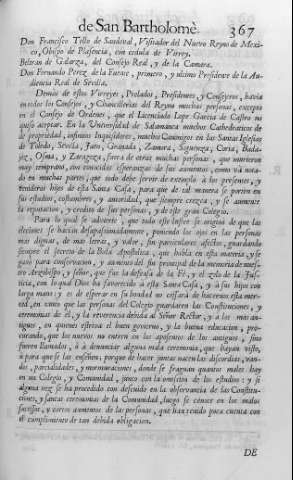 de San Bartholomè. 367
Don Francisco Tello de Sandoval, Visitador del Nuevo Reyno de Mexi-
co, Obispo de Plasencia, con cedula de Virrey.
Beltran de Galarza, del Consejo Real, y de la Camara.
Don Fernando Perez de la Fuente, primero, y ultimo Presidente de la Au-
diencia Real de Sevilla.
Demàs de estos Virreyes, Prelados, Presidentes, y Consejeros, havia
en todos los Consejos, y Chancillerias del Reyno muchas personas, excepto
en el Consejo de Ordenes, que el Licenciado Lope Garcia de Castro no
quiso aceptar. En la Universidad de Salamanca muchos Cathedraticos de
propriedad, infinitos Inquisidores, muchos Canonigos en las Santas Iglesias
de Toledo, Sevilla, Jaen, Granada, Zamora, Siguenza, Coria, Bada-
joz, Osma, y Zaragoza, fuera de otras muchas personas, que murieron
muy temprano, con conocidas esperanzas de sus aumentos, como và nota-
do en muchas partes; que todo debe servir de exemplo à los presentes, y
venideros hijos de esta Santa Casa, para que de tal manera se porten en
sus estudios, costumbres, y autoridad, que siempre crezca, y se aumente
la reputacion, y credito de sus personas, y de este gran Colegio.
Para lo qual se advierte, que todo esto se origina de que las
elecciones se hacian desapasionadamente, poniendo los ojos en las personas
mas dignas, de mas letras, y valor, sin particulares afectos, guardando
siempre el tenor de la Bula Apostolica, que habla en esta materia, y se
ganò para conservacion, y aumento del fin principal de la memoria de nues-
tro Arzobispo, y señor, que fue la defensa de la Fè, y el zelo de la Jus-
ticia, con lo qual Dios ha favorecido à esta Santa Casa, y à sus hijos con
larga mano; y es de esperar en su bondad no cessarà de hacernos esta mer-
ced, en tanto que las personas del Colegio guardaren las Constituciones, y
ceremonias de èl, y la reverencia debida al Señor Rector, y a los mas an-
tiguos, en quienes estriva el buen govierno, y la buena educacion, pro-
curando, que los nuevos no entren en los aposentos de los antiguos, sino
fueren llamados, ò à denunciar alguna mala ceremonia, que hayan visto,
ò para que se las enseñen, porque de hacer juntas nacen las discordias, van-
dos, parcialidades, y murmuraciones, donde se fraguan quantos males hay
en un Colegio, y Comunidad, junto con la omission de los estudios: y si
alguna vez se ha procedido con descuido en la observancia de las Constitu-
ciones, y santas ceremonias de la Comunidad, luego se conoce en los malos
sucessos, y cortos aumentos de las personas, que han tenido poca cuenta con
el cumplimiento de tan debida obligacion.
DE